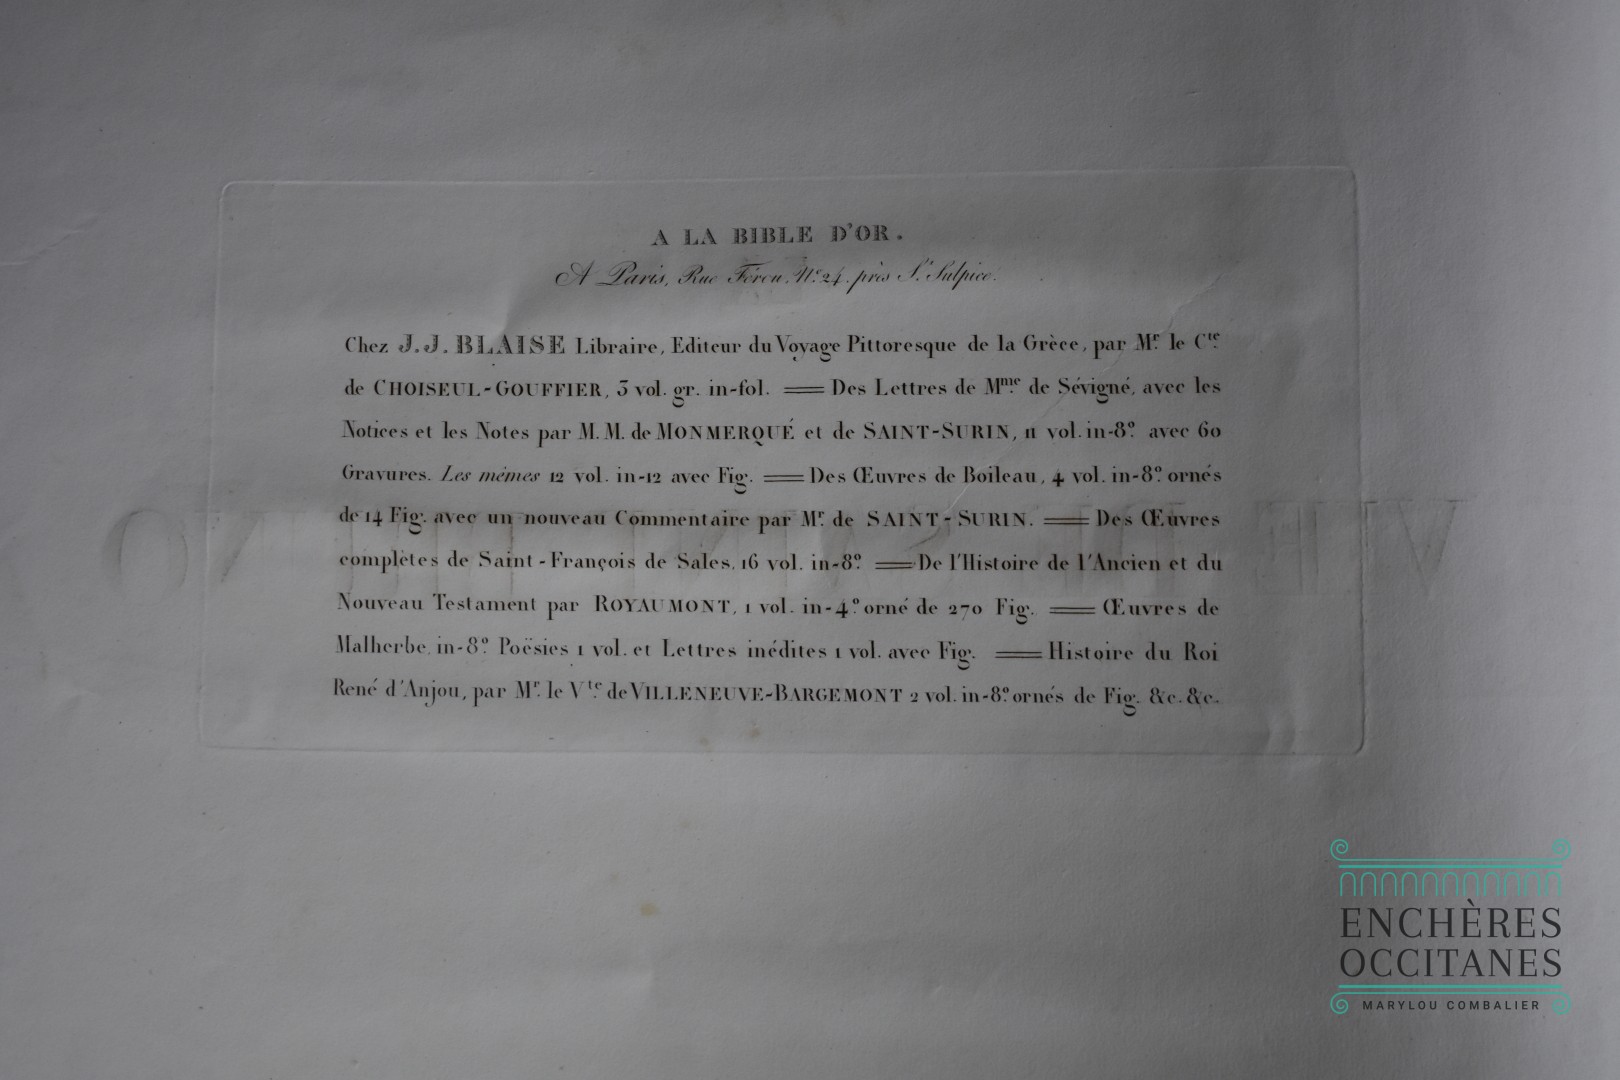 A LA BIBLE D'OR.
A Paris, Rue Férou, N.º 24. près S.t Sulpice.
Chez J.J. BLAISE Libraire, Editeur du Voyage Pittoresque de la Grèce, par M.r le C.te
de CHOISEUL-GOUFFIER, 3 vol. gr. in-fol. ═ Des Lettres de M.me de Sévigné, avec les
Notices et les Notes par M.M. de MONMERQUÉ et de SAINT-SURIN, 11 vol. in-8.º avec 60
Gravures. Les mêmes 12 vol. in-12 avec Fig. ═ Des Œuvres de Boileau, 4 vol. in-8.º ornés
de 14 Fig. avec un nouveau Commentaire par M.r de SAINT-SURIN. ═ Des Œuvres
complètes de Saint-François de Sales, 16 vol. in-8.º ═ De l'Histoire de l'Ancien et du
Nouveau Testament par ROYAUMONT, 1 vol. in-4.º orné de 270 Fig. ═ Œuvres de
Malherbe, in-8.º Poësies 1 vol. et Lettres inédites 1 vol. avec Fig. ═ Histoire du Roi
René d'Anjou, par M.r le V.te de VILLENEUVE-BARGEMONT 2 vol. in-8.º ornés de Fig. &c. &c.
ENCHÈRES
OCCITANES
MARYLOU COMBALIER